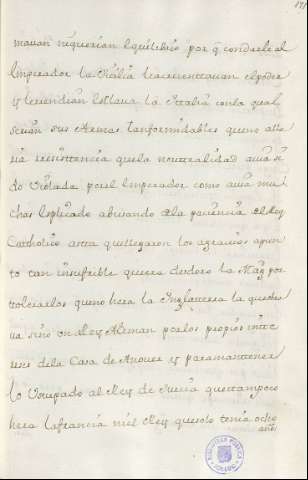 171
mavan ni querian Equilibrio por q. con darle al
Emperador la Sicilia le acrecenttavan el poder
y le rendian Esclava la Ittalia con la qual
serian sus Armas tan formidables que no alle
ria resisttencia que la neuttralidad avia si
do Violada por el Emperador como avia mu
chos Explicado abusando de la paciencia del Rey
Catholico asta que llegaron los agravios a pun
to tan insufrible que era desdoro la Mag. por
tolerarlos que no hera la Ynglatterra la que
va sino en Rey Aleman por los propios intte
reses dela Casa de Anover y para manttener
lo Vocupado al Rey de Suecia que ttampoco
hera la francia ni el Rey que solo ttenia ocho
años
BIBLIOTECA PUBLICA
TOLEDO